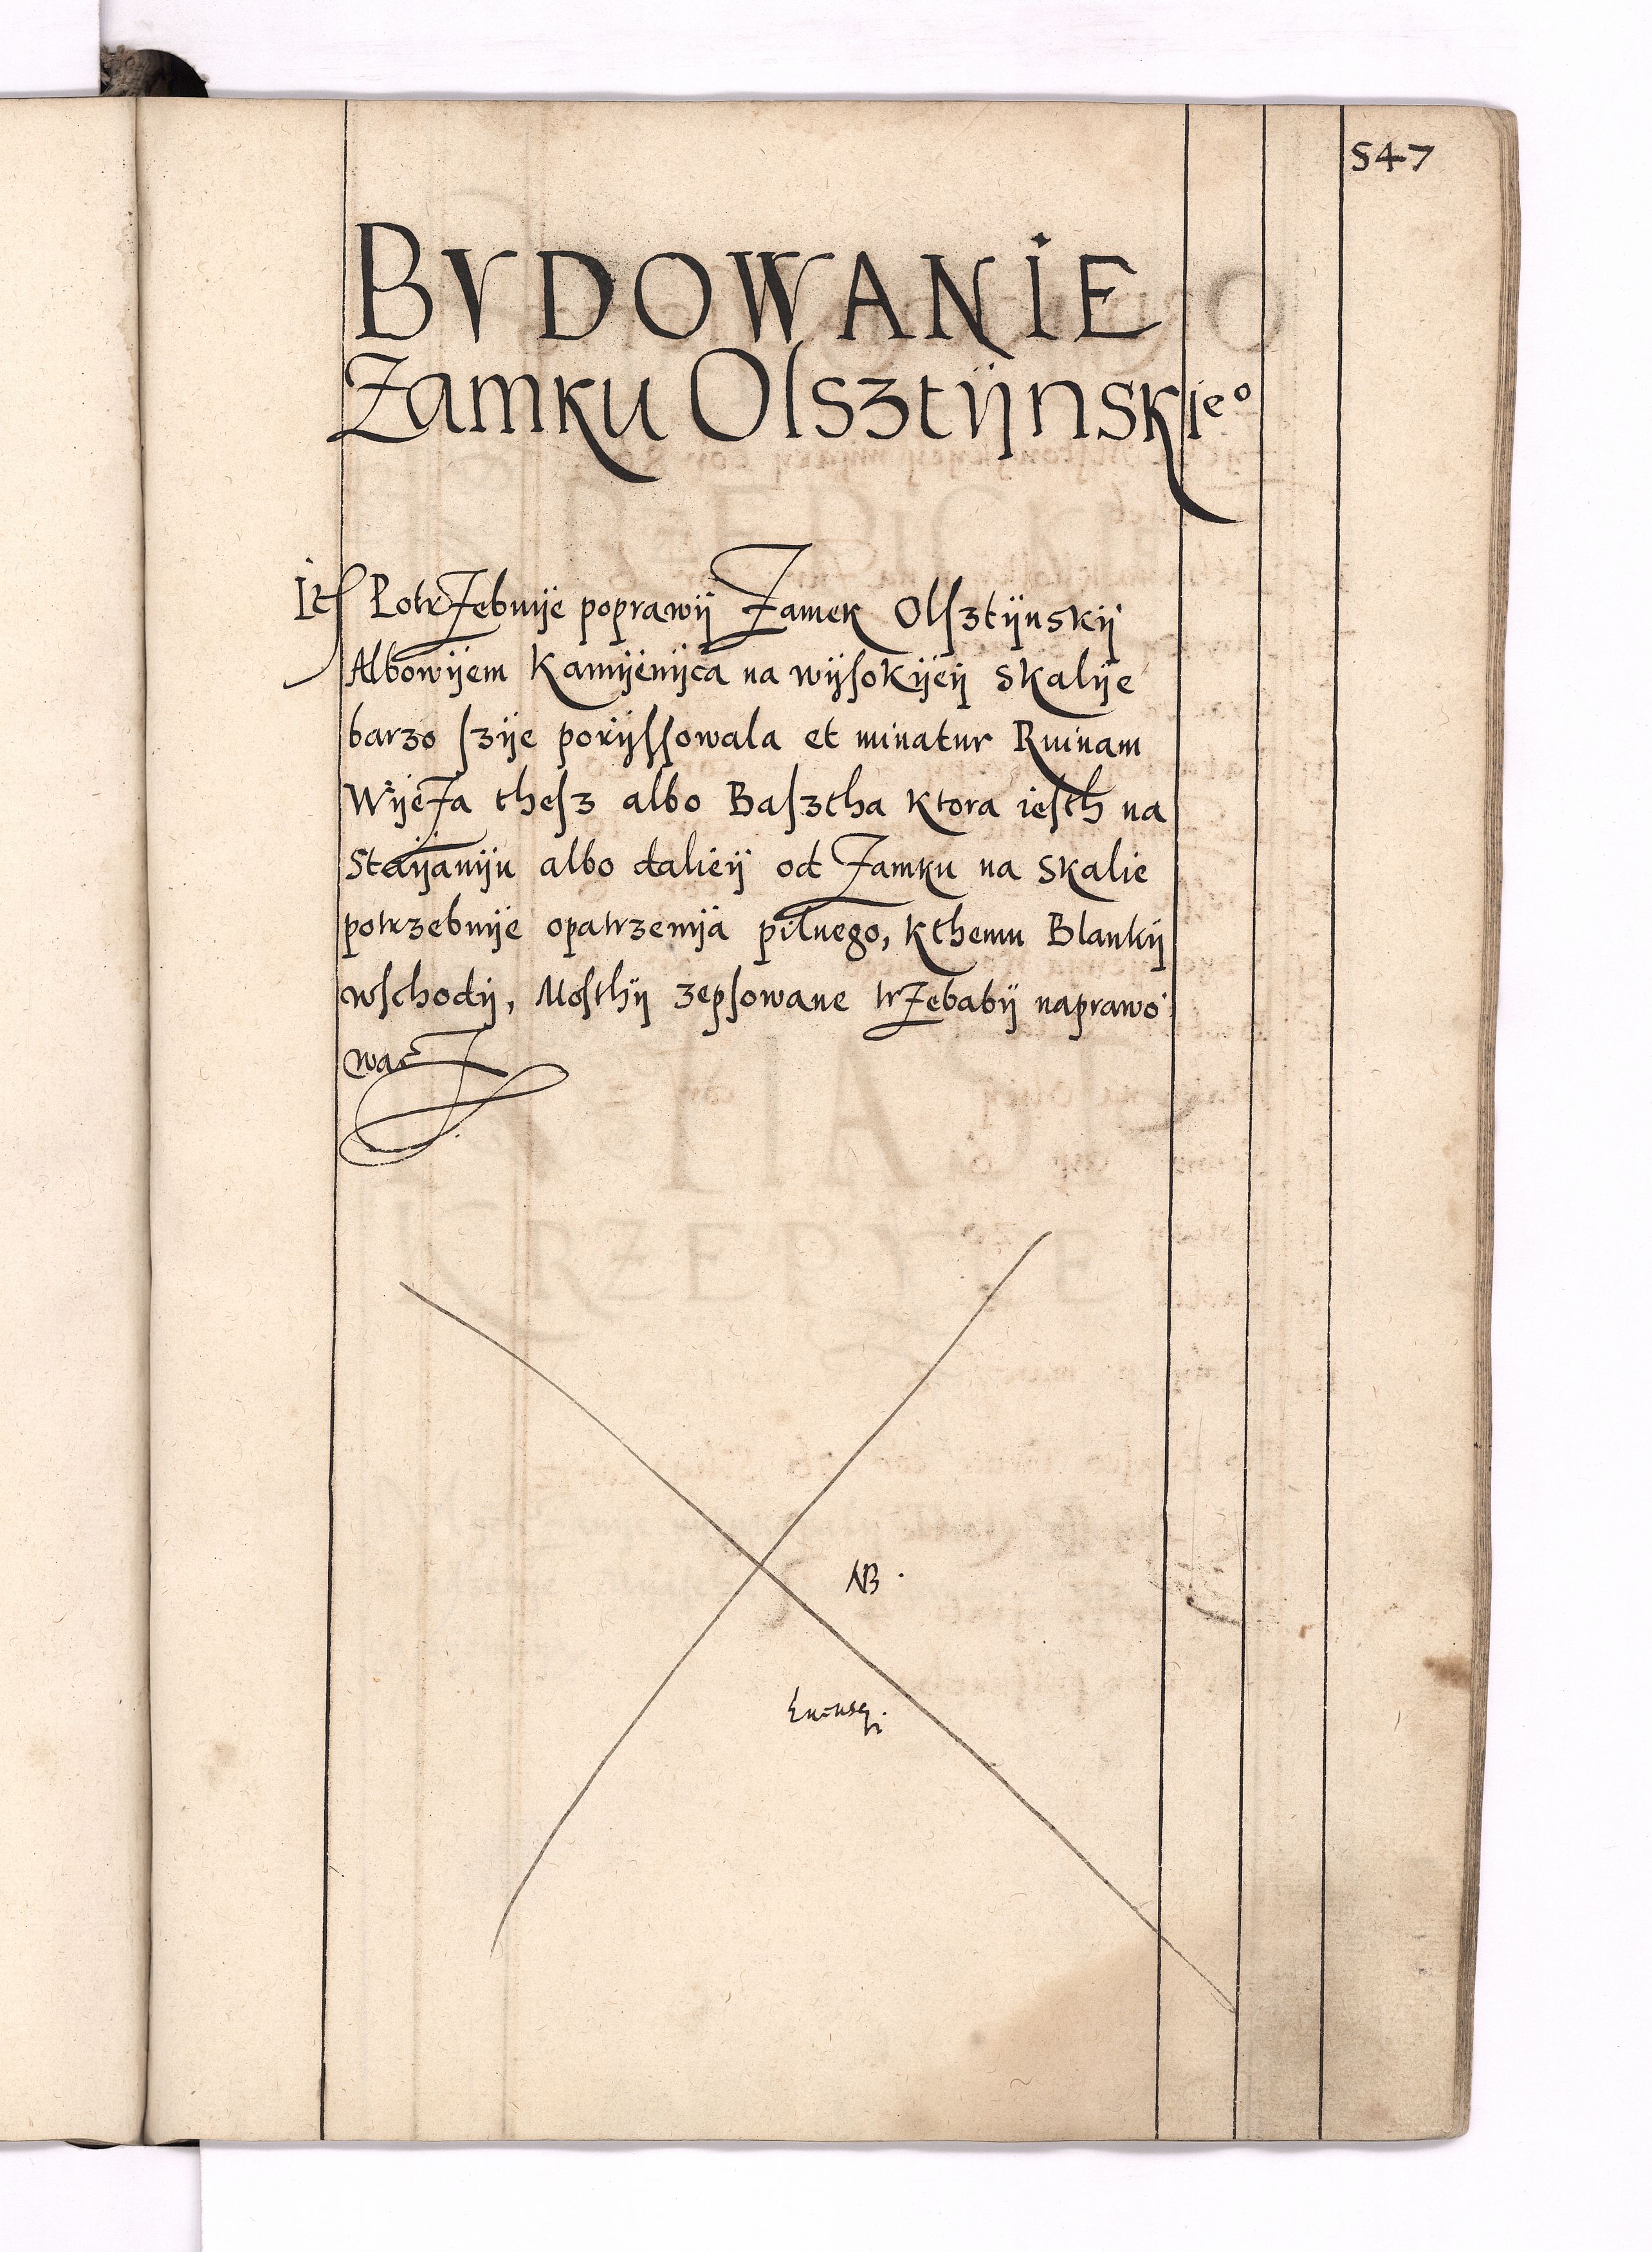 547
BVDOWANIE
Zamku Olsztijnskie⁰
Itſ Potrzebnije poprawij Zamek Olſztijnskij
Albowijem Kamijenijca na wijſokijeij skalije
barzo ſzije porijſſowala et minatur Ruinam
Wijeza theſz albo Baſztha ktora ieſth na
Staijaniju albo dalieij od Zamku na skalie
potrzebnije opatrzenija pilnego, kthemu Blankij
wſchodij, Moſthij zepſowane trzebabij naprawo
wacz
NB.